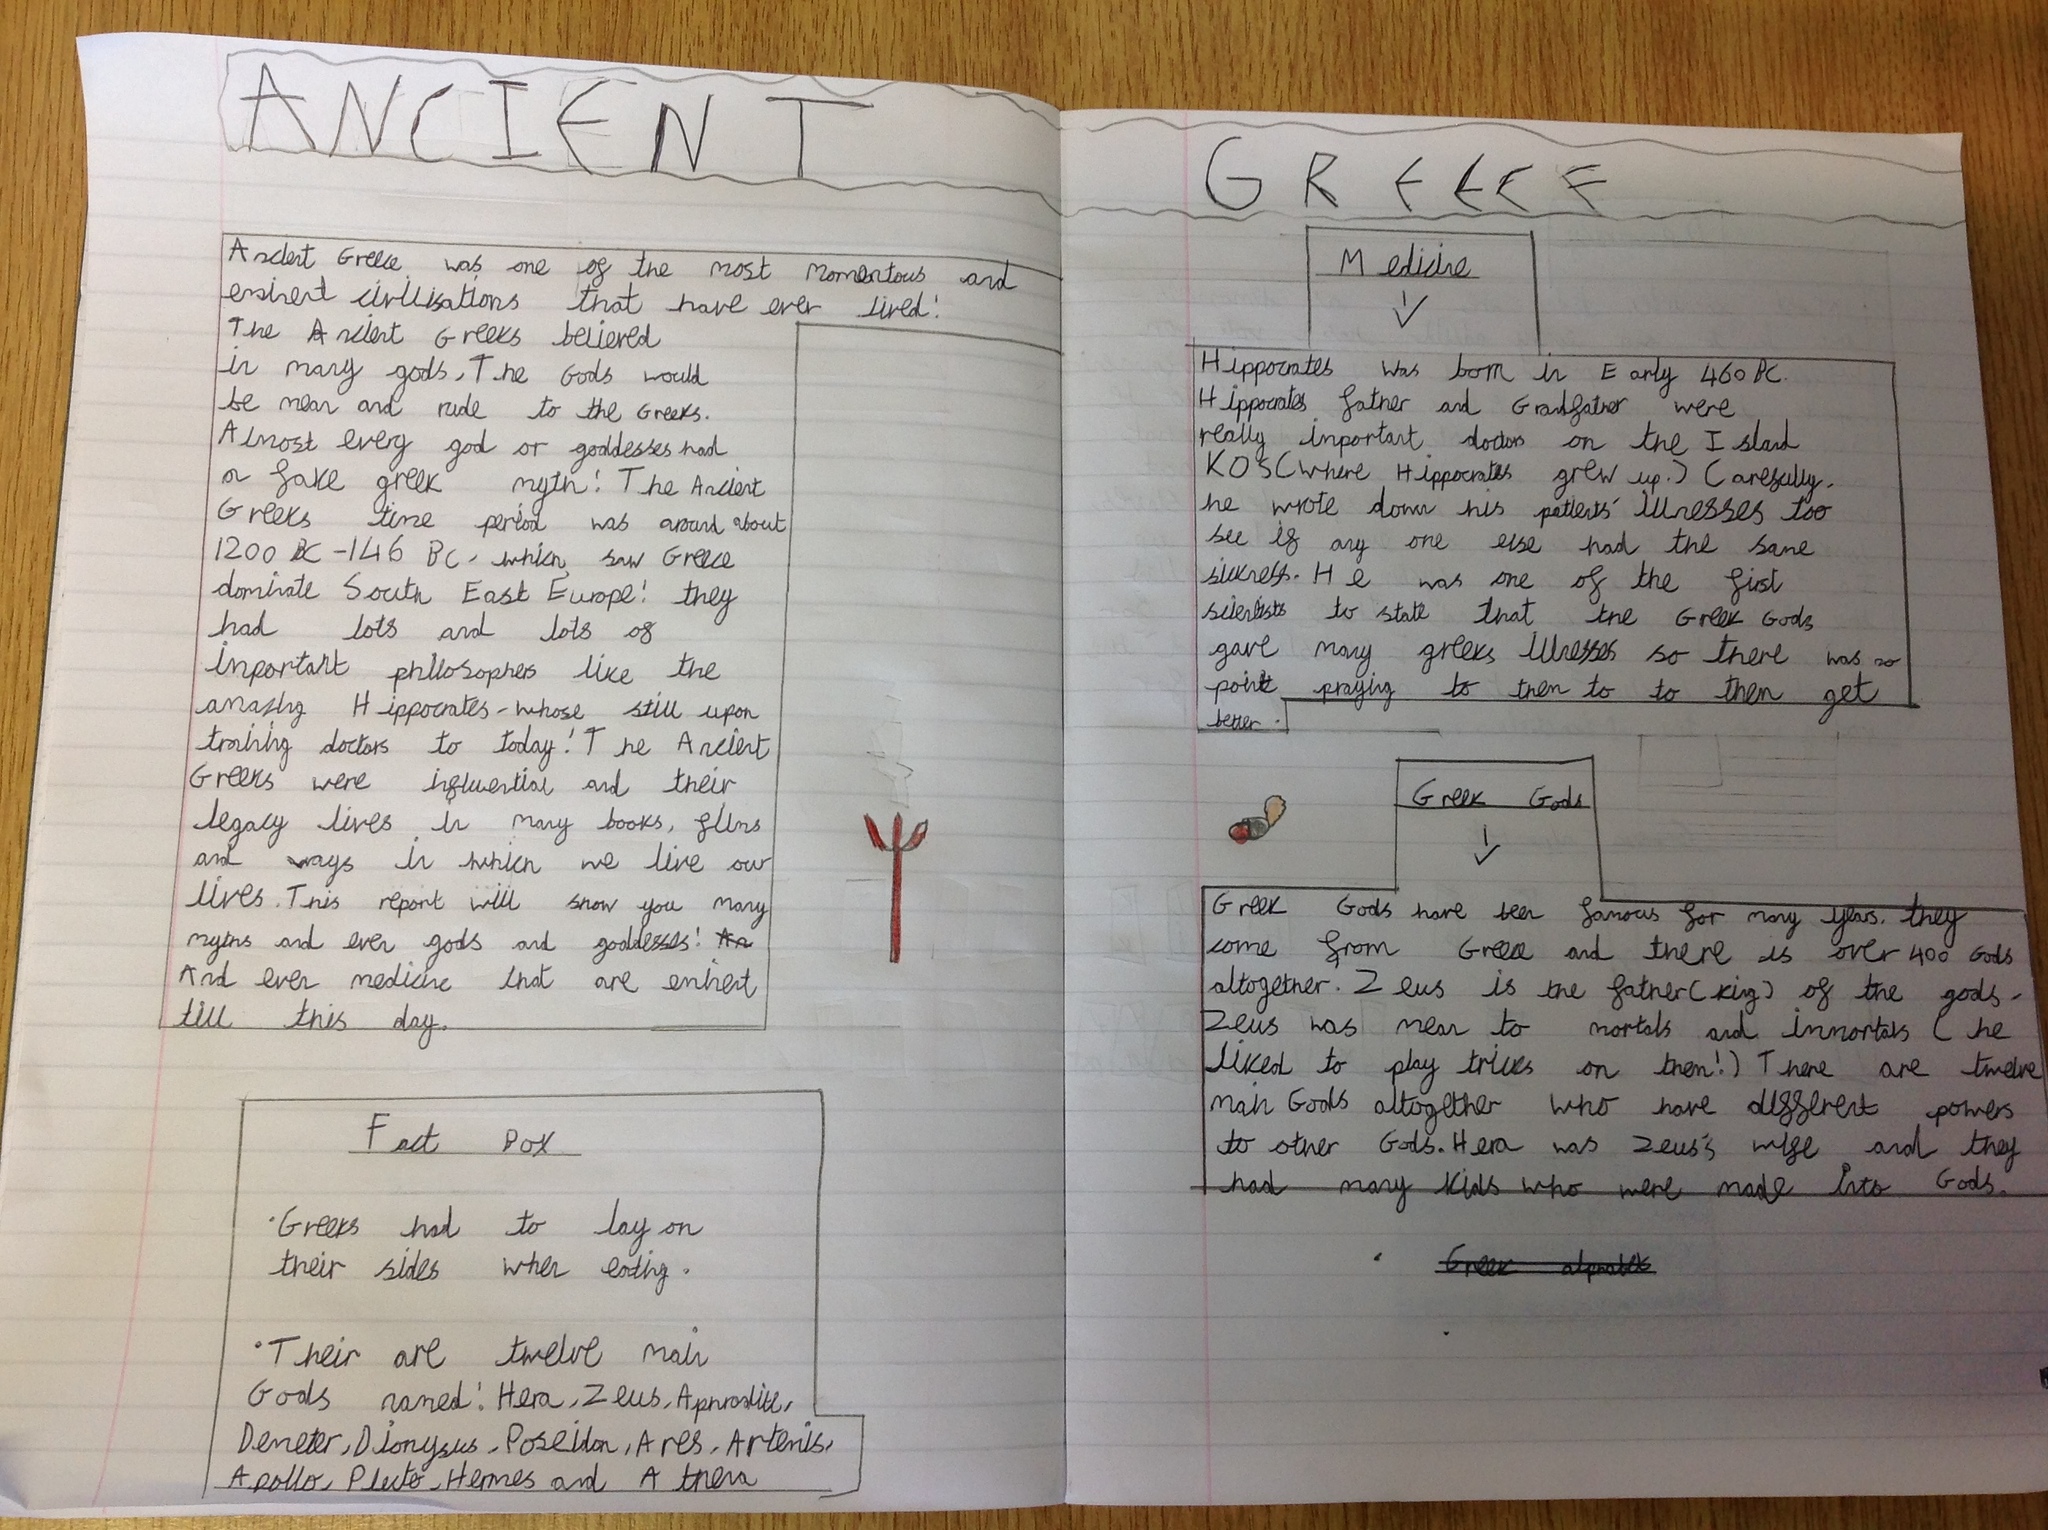 ANCIENT
Ancient Greece was one of the most momentous and
eminent civilisations that have ever lived!
The Ancient Greeks believed
in many gods, The Gods would
be mean and rude to the Greeks.
Almost every god or goddesses had
a fake greek myth! The Ancient
Greeks time period was around about
1200 BC - 146 BC. which saw Greece
dominate South East Europe! they
had lots and lots of
important philosophers like the
amazing Hippocrates - whose still upon
training doctors to today! The Ancient
Greeks were influential and their
legacy lives in many books, films
and ways in which we live our
lives. This report will show you many
myths and even gods and goddesses! An
And even medicine that are eminent
till this day.
Fact Box
• Greeks had to lay on
their sides when eating.
• Their are twelve main
Gods named: Hera, Zeus, Aphrodite,
Demeter, Dionysus, Poseidon, Ares, Artemis,
Apollo, Pluto, Hermes and Athena
GREECE
Medicine
Hippocrates was born in Early 460 BC.
Hippocrates father and Grandfather were
really important doctors on the Island
KOS (where Hippocrates grew up.) Carefully,
he wrote down his patients' illnesses too
see if any one else had the same
sickness. He was one of the first
scientists to state that the Greek Gods
gave many greeks illnesses so there was no
point praying to them to to them get
better.
Greek Gods
Greek Gods have been famous for many years. they
come from Greece and there is over 400 Gods
altogether. Zeus is the father (king) of the gods.
Zeus was mean to mortals and immortals (he
liked to play tricks on them!) There are twelve
main Gods altogether who have different powers
to other Gods. Hera was Zeus's wife and they
had many kids who were made into Gods.
Greek alphabet